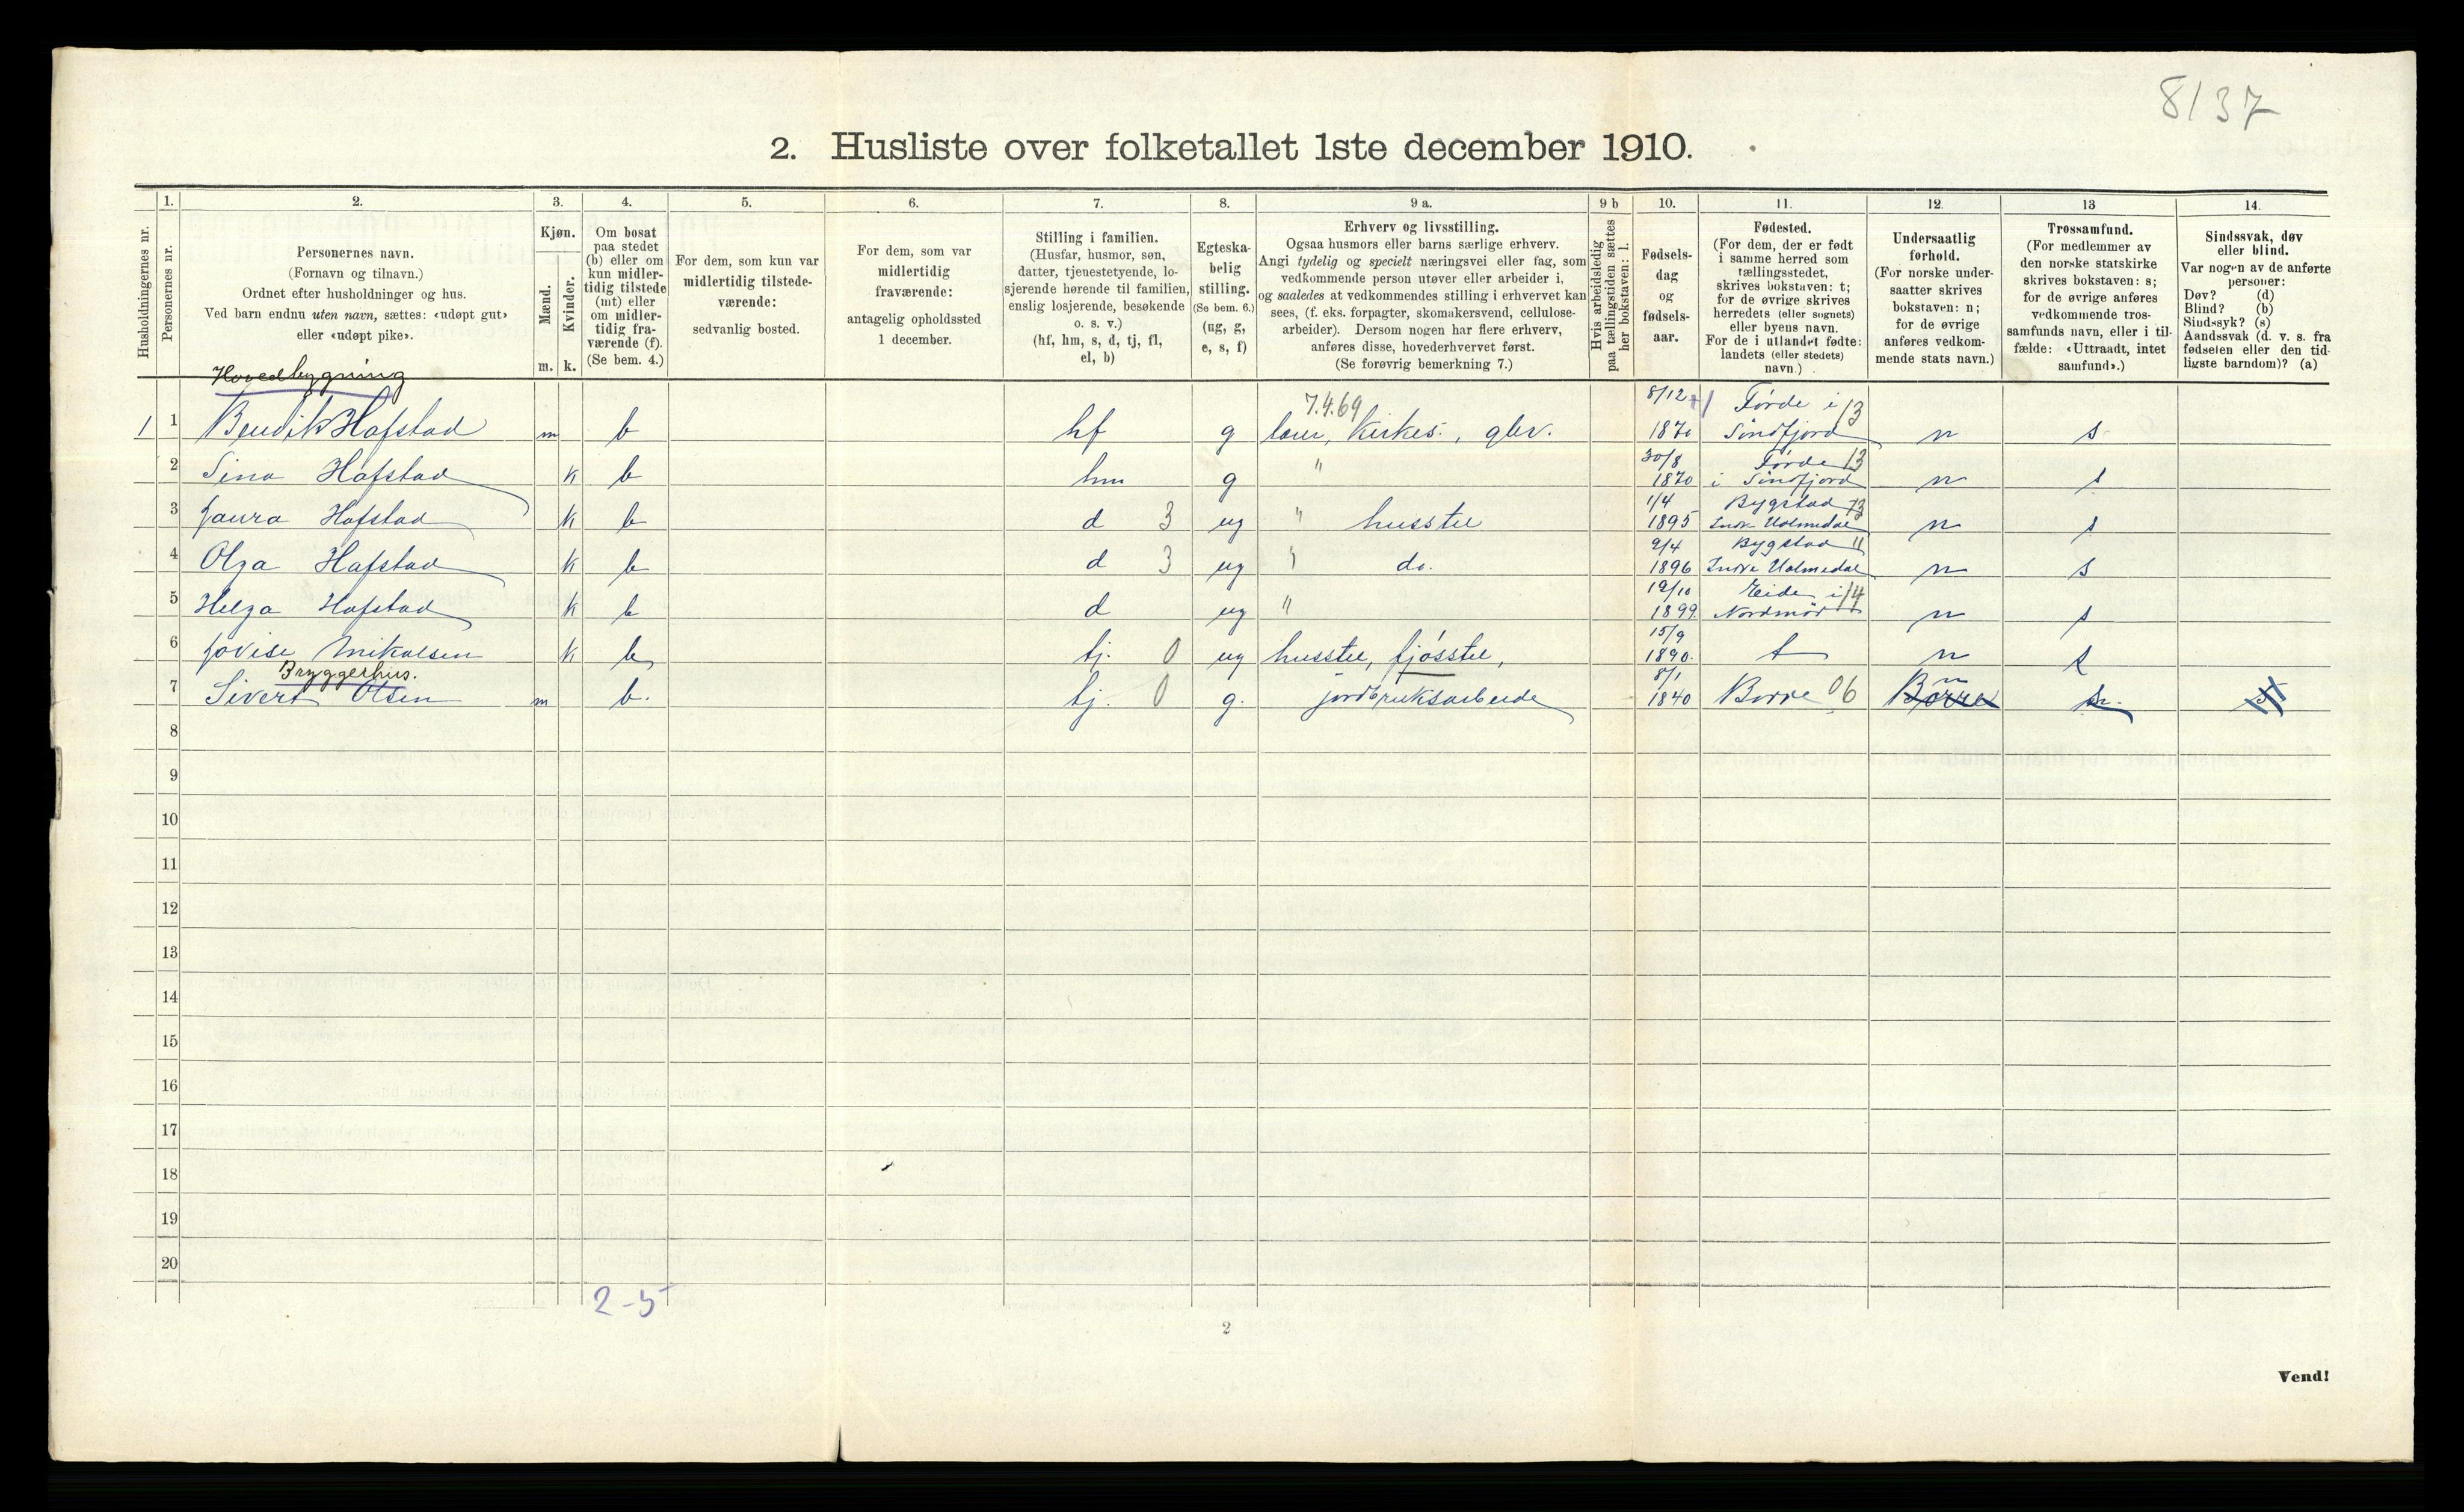 8137
2. Husliste over folketallet 1ste december 1910.
Husholdningernes nr.
1.
Personernes nr.
2.
Personernes navn.
(Fornavn og tilnavn.)
Ordnet efter husholdninger og hus.
Ved barn endnu uten navn, sættes: «udøpt gut»
eller «udøpt pike».
3.
Kjøn.
Mænd.
Kvinder.
m. k.
4.
Om bosat
paa stedet
(b) eller om
kun midler-
tidig tilstede
(mt) eller
om midler-
tidig fra-
værende (f).
(Se bem. 4.)
5.
For dem, som kun var
midlertidig tilstede-
værende:
sedvanlig bosted.
6.
For dem, som var
midlertidig
fraværende:
antagelig opholdssted
1 december.
7.
Stilling i familien.
(Husfar, husmor, søn,
datter, tjenestetyende, lo-
sjerende hørende til familien,
enslig losjerende, besøkende
o. s. v.)
(hf, hm, s, d, tj, fl,
el, b)
8.
Egteska-
belig
stilling.
(Se bem. 6.)
(ug, g,
e, s, f)
9 a.
Erhverv og livsstilling.
Ogsaa husmors eller barns særlige erhverv.
Angi tydelig og specielt næringsvei eller fag, som
vedkommende person utøver eller arbeider i,
og saaledes at vedkommendes stilling i erhvervet kan
sees, (f. eks. forpagter, skomakersvend, cellulose-
arbeider). Dersom nogen har flere erhverv,
anføres disse, hovederhvervet først.
(Se forøvrig bemerkning 7.)
9 b
Hvis arbeidsledig
paa tællingstiden sættes
her bokstaven: l.
10.
Fødsels-
dag
og
fødsels-
aar.
11.
Fødested.
(For dem, der er født
i samme herred som
tællingsstedet,
skrives bokstaven: t;
for de øvrige skrives
herredets (eller sognets)
eller byens navn.
For de i utlandet fødte:
landets (eller stedets)
navn.)
12.
Undersaatlig
forhold.
(For norske under-
saatter skrives
bokstaven: n;
for de øvrige
anføres vedkom-
mende stats navn.)
13
Trossamfund.
(For medlemmer av
den norske statskirke
skrives bokstaven: s;
for de øvrige anføres
vedkommende tros-
samfunds navn, eller i til-
fælde: «Uttraadt, intet
samfund».)
14.
Sindssvak, døv
eller blind.
Var nogen av de anførte
personer:
Døv? (d)
Blind? (b)
Sindssyk? (s)
Aandssvak (d. v. s. fra
fødselen eller den tid-
ligste barndom)? (a)
Hovedbygning
1 1 Bendik Hafstad m b hf g 7.4.69 lærer, Kirkes., gbr. 8/12 1870 Førde i Søndfjord 13 n s
2 Sina Hafstad k b hm g " 30/8 1870 Førde i Søndfjord 13 n s
3 Laura Hafstad k b d 3 ug " husstel 1/4 1895 Bygstad Indre Holmedal 13 n s
4 Olga Hafstad k b d 3 ug " do. 9/4 1896 Bygstad Indre Holmedal " n s
5 Helga Hafstad k b d ug " 19/10 1899 Eide i Nordmør 14 n s
6 Lovise Mikalsen k b tj. 0 ug husstel, fjøsstel, 15/9 1890. t n s
Bryggerhus.
7 Sivert Olsen m b. tj. 0 g. jordbruksarbeide 8/1 1840 Borre 06 Borre n
8
9
10
11
12
13
14
15
16
17
18
19
20
2-5
2
Vend!